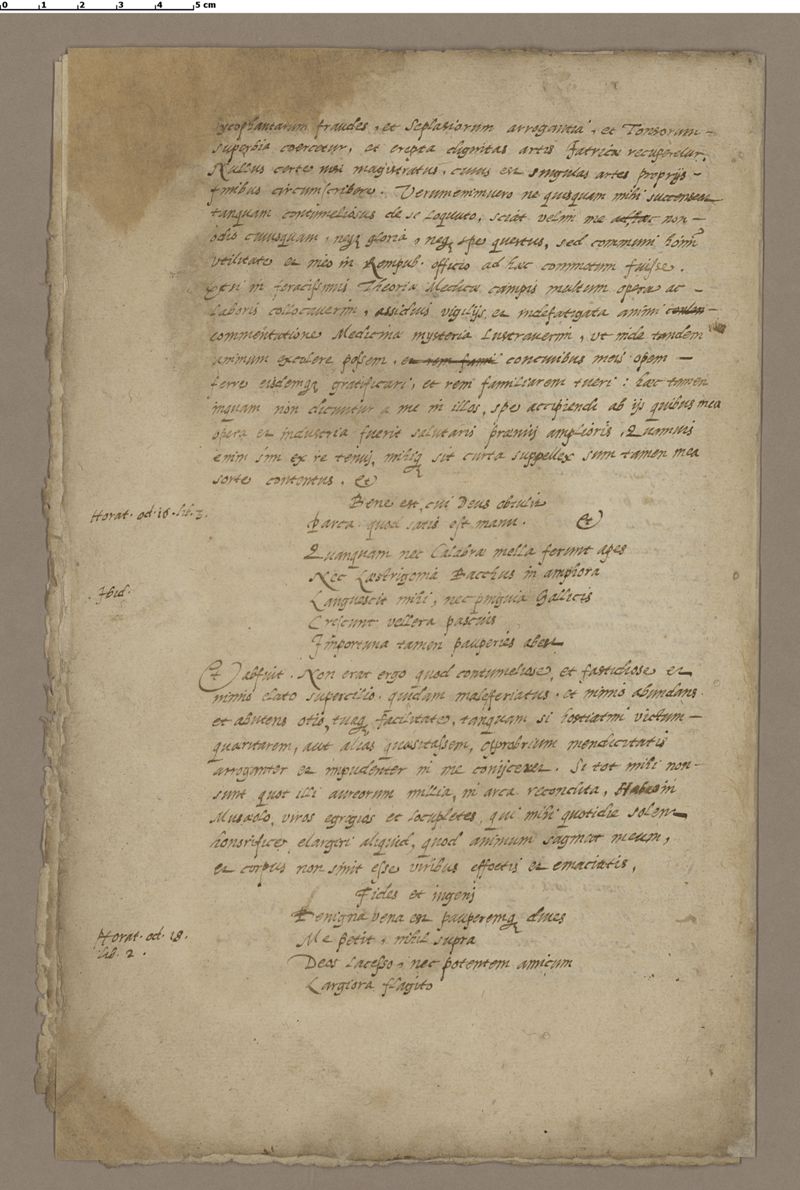 0 1 2 3 4 5 cm
sycophantarum fraudes, et Seplasiorum arrogantia, et Tonsorum
superbia coercetur, et erepta dignitas artis Iatricæ recuperetur.
Nullus certe nisi magistratus, cuius est singulas artes proprijs
finibus circumscribere. Verumenimuero ne quisquam mihi succenseat
tanquam contumeliosius de se loquuto, sciat velim me non
odio cuiusquam, neqȝ gloria, neqȝ spe quæstus, sed communi homĩ
utilitate et meo in Rempub. officio ad hæc commotum fuisse.
Etsi in feracissimis Theoriæ Medicæ campis multum operæ ac
laboris collocauerim, assiduis vigilijs et indefatigata animi
commentatione Medicinæ mysteria lustrauerim, ut inde tandem
animum excolere possem, et rem fami conciuibus meis opem
ferre eisdemqȝ gratificari, et rem familiarem tueri: hæc tamen
inquam non dicuntur a me in illos, spe accipiendi ab ijs quibus mea
opera et industria fuerit salutaris præmij amplioris. Quamuis
enim sim ex re tenui, mihiqȝ sit curta suppellex sum tamen mea
sorte contentus. et
Bene est, cui Deus obtulit
Horat. od. 16. lib. 3.
Parca quod satis est manu. Et
Quanquam nec Calabræ mella ferunt apes
Nec Læstrigonia Bacchus in amphora
Ibid.
Languescit mihi, nec pinguia Gallicis
Crescunt vellera pascuis
Importuna tamen pauperies abest
Et abfuit. Non erat ergo quod contumeliose, et fastidiose et
nimio elato supercilio quidam maleferiatus, et nimio abundans
et abutens otio, tuaqȝ facilitate, tanquam si hostiatim victum
quæritarem, aut alias quæsitassem, opprobrium mendicitatis
arroganter et impudenter in me conijceret. Si tot mihi non
sunt quot illi aureorum millia, in arca recondita, Habeo in
Musæolo, viros egregios et locupletes, qui mihi quotidie solent
honorifice, elargiri aliquid, quod animum saginat meum,
et corpus non sinit esse viribus effoetis et emaciatis,
Fides et ingenj
Benigna vena est pauperemqȝ diues
Horat. od. 18.
lib. 2.
Me petit, nihil supra
Deos lacesso, nec potentem amicum
Largiora flagito